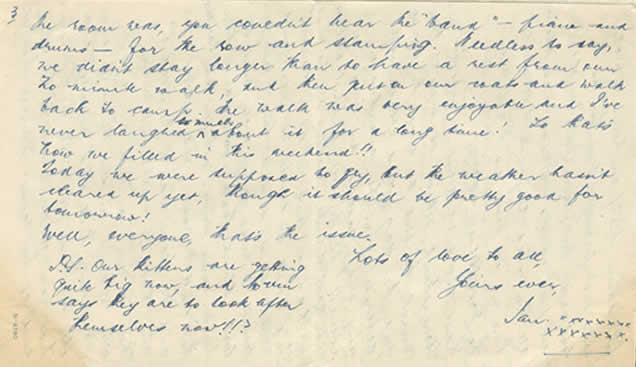 3
the room was, you couldn't hear the "band" - piano and
drums - for the row and stamping. Needless to say,
we didn't stay longer than to have a rest from our
20 minute walk, and then put on our coats and walk
back to camp. The walk was very enjoyable and I've
never laughed so much about it for a long time! So that's
how we filled in this weekend!!
Today we were supposed to fly, but the weather hasn't
cleared up yet, though it should be pretty good for
tomorrow!
Well, everyone, that's the issue.
Lots of love to all,
Yours ever,
Ian. xxxxxxxx
xxxxxxx.
P.S. Our kittens are getting
quite big now, and
says they are to look after
themselves now!!?